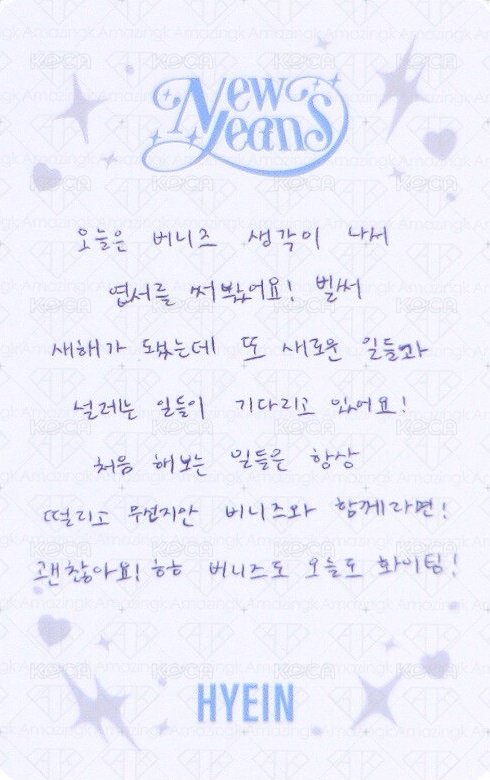 NewJeans
오늘은 버니즈 생각이 나서
엽서를 써봤어요! 벌써
새해가 됐는데 또 새로운 일들과
설레는 일들이 기다리고 있어요!
처음 해보는 일들은 항상
떨리고 무섭지만 버니즈와 함께라면!
괜찮아요! ㅎㅎ 버니즈도 오늘도 화이팅!
HYEIN